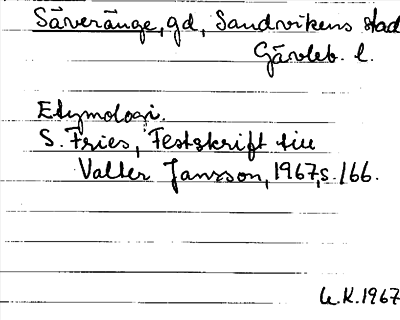 Säveränge, gd, Sandvikens stad
Gävleb. l.
Etymologi.
S. Fries, Festskrift till
Valter Jansson, 1967, s. 166.
U.K. 1967